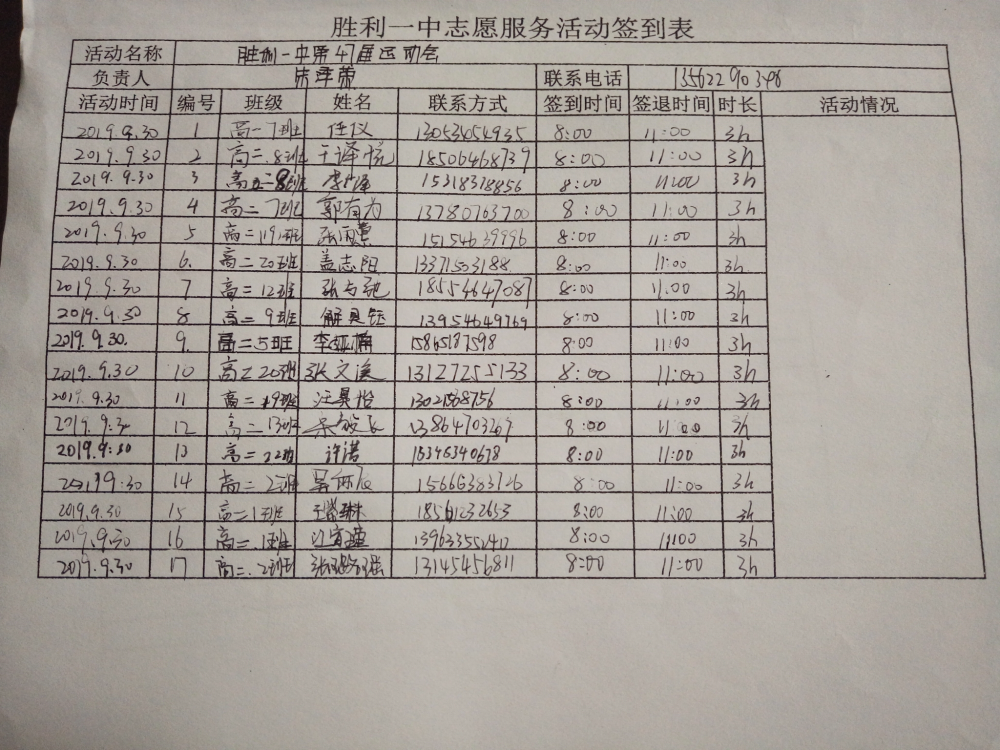 胜利一中志愿服务活动签到表
活动名称 胜利一中第47届运动会
负责人 联系电话 13562290348
活动时间 编号 班级 姓名 联系方式 签到时间 签退时间 时长 活动情况
2019.9.30 1 高一7班 任仪 13053454935 8:00 11:00 3h
2019.9.30 2 高二.8班 于译悦 18506468739 8:00 11:00 3h
2019.9.30 3 15318318856 8:00 11:00 3h
2019.9.30 4 高二7班 郭有为 13780763700 8:00 11:00 3h
2019.9.30 5 高二19班 15154639996 8:00 11:00 3h
2019.9.30 6. 高二20班 盖志阳 13371503188 8:00 11:00 3h
2019.9.30 7 高二12班 18554647087 8:00 11:00 3h
2019.9.30 8 高二9班 13954649769 8:00 11:00 3h
2019.9.30. 9. 高二5班 李亚楠 15865187598 8:00 11:00 3h
2019.9.30 10 高二20班 张文溪 13127255133 8:00 11:00 3h
2019.9.30 11 汪昊怡 8:00 11:00 3h
2019.9.30 12 高二13班 13864703267 8:00 11:00 3h
2019.9.30 13 高二22班 许诺 15346340678 8:00 11:00 3h
2019.9.30 14 高二2班 15666383726 8:00 11:00 3h
2019.9.30 15 高二1班 18561232653 8:00 11:00 3h
2019.9.30 16 高二.1班 8:00 11:00 3h
2019.9.30 17 高二.2班 13145456811 8:00 11:00 3h